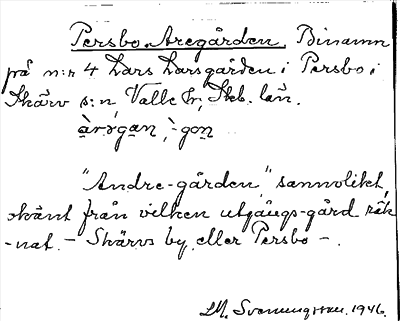 Persbo Aregården. Binamn
på n:r 4 Lars Larsgården i Persbo i
Skärv s:n Valle hr, Skb. län.
àrə̀gan, -gon
"Andre-gården", sannolikt,
okänt från vilken utgångs-gård räk
-nat. – Skärvs by eller Persbo –.
LM. Svenungsson. 1946.